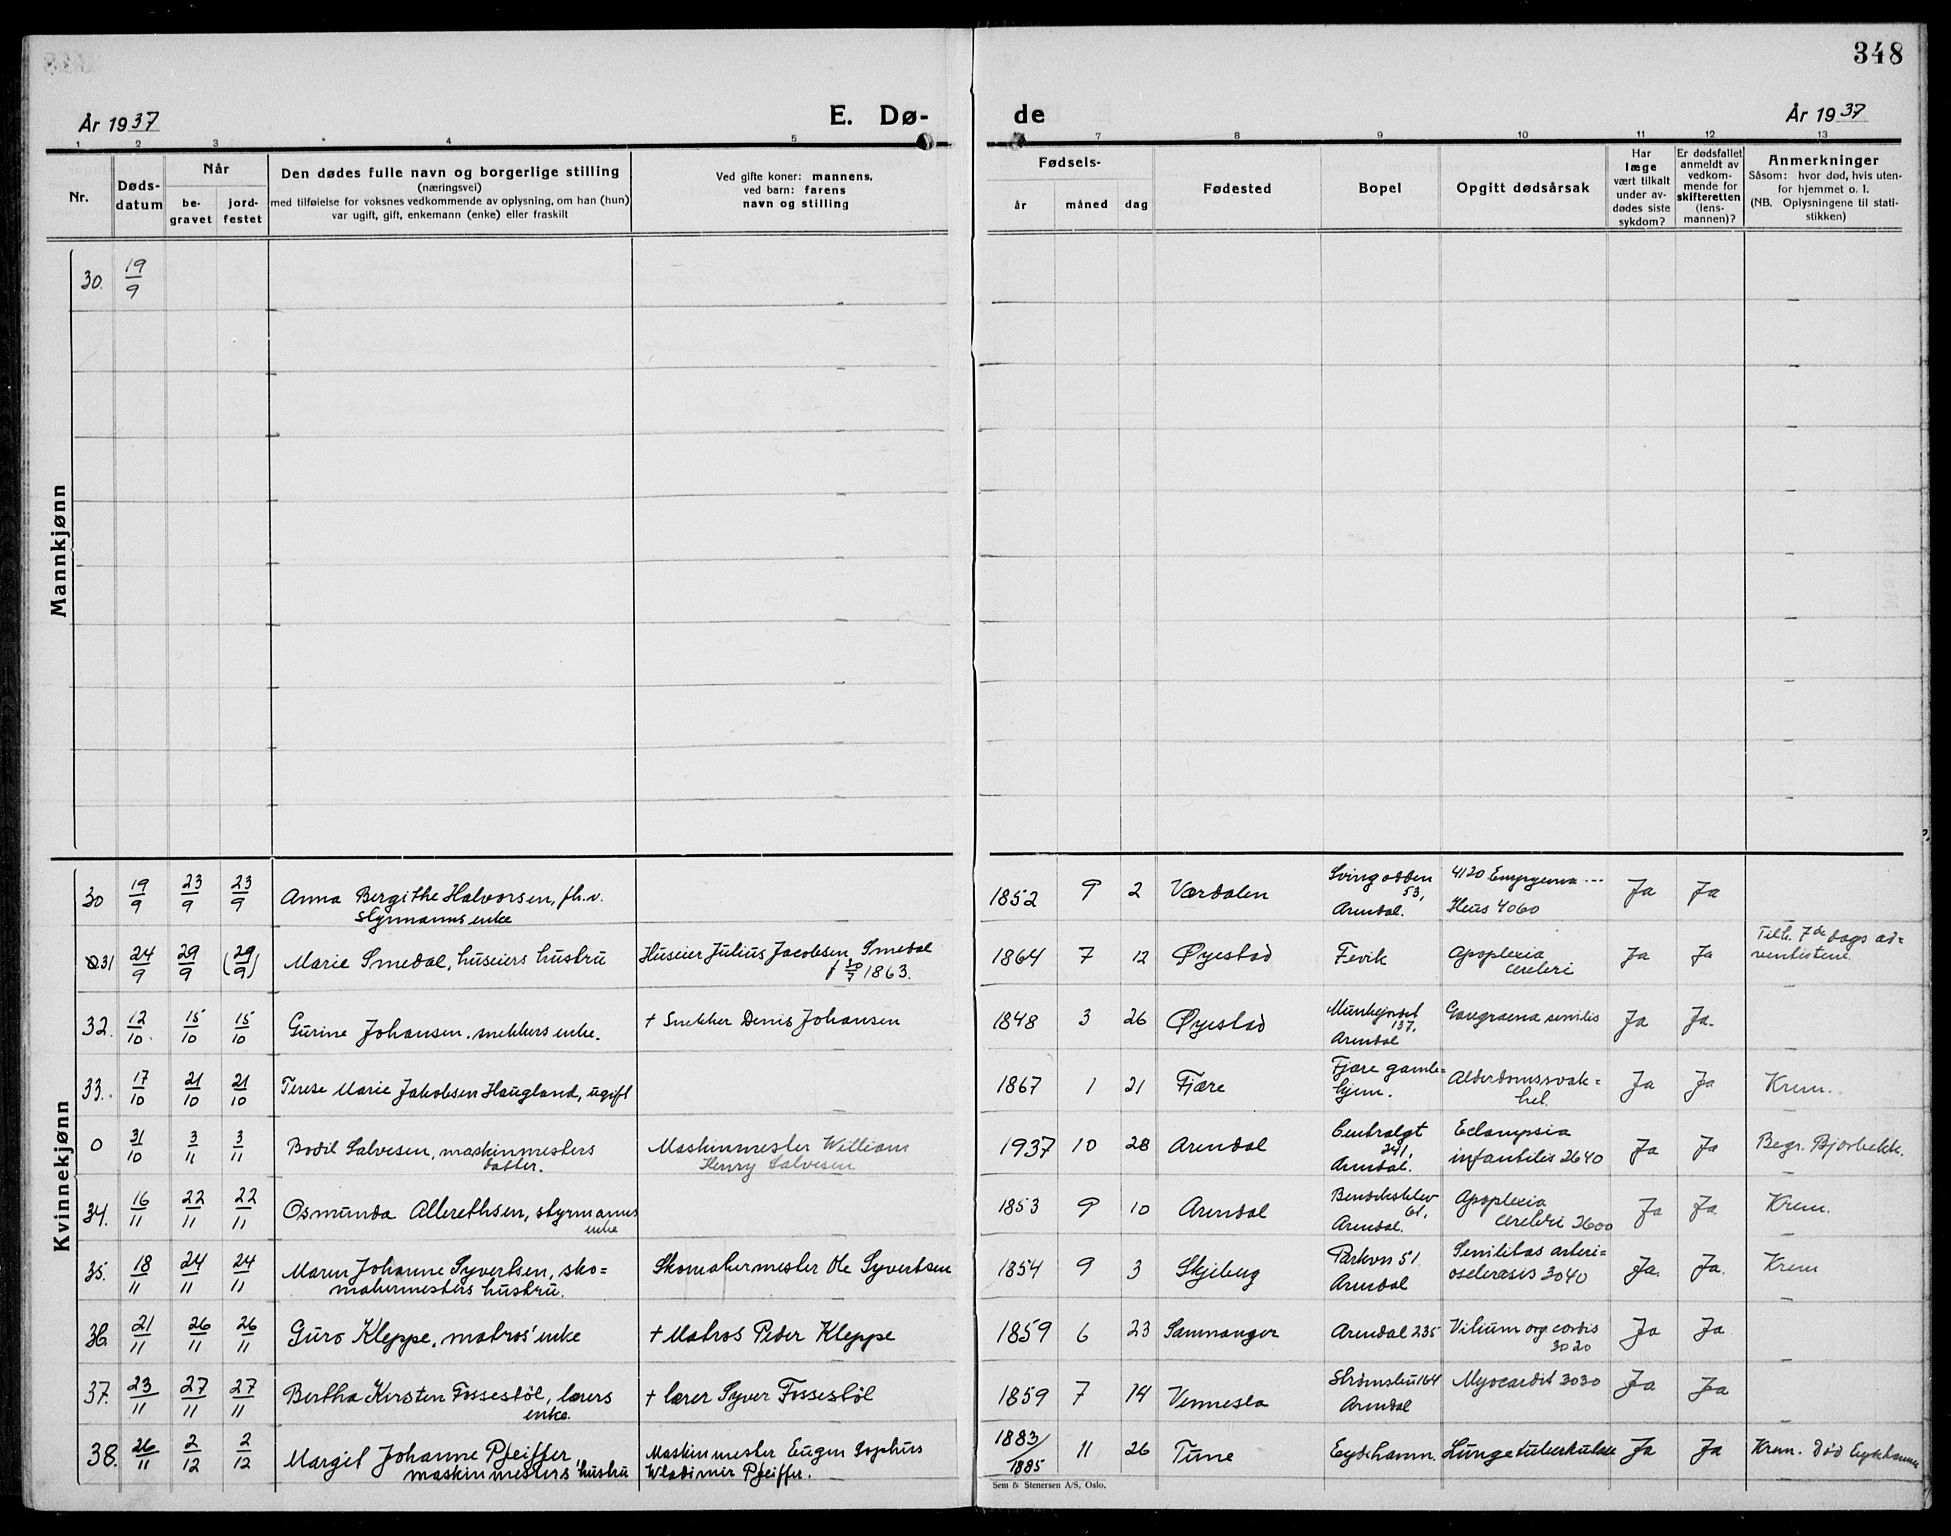 348
År 1937
E. Dø-
de
År 1937
1 2 3 4 5 7 8 9 10 11 12 13
Nr.
Døds-
datum
Når
be-
gravet
jord-
festet
Den dødes fulle navn og borgerlige stilling
(næringsvei)
med tilføielse for voksnes vedkommende av oplysning, om han (hun)
var ugift, gift, enkemann (enke) eller fraskilt
Ved gifte koner: mannens,
ved barn: farens
navn og stilling
Fødsels-
år måned dag
Fødested
Bopel
Opgitt dødsårsak
Har
læge
vært tilkalt
under av-
dødes siste
sykdom?
Er dødsfallet
anmeldt av
vedkom-
mende for
skifteretten
(lens-
mannen)?
Anmerkninger
Såsom: hvor død, hvis uten-
for hjemmet o. l.
(NB. Oplysningene til stati-
stikken)
Mannkjønn
30. 19/9
Kvinnekjønn
30 19/9 23/9 23/9 Anna Bergithe Halvorsen, fh.v.
styrmanns enke
1852 9 2 Værdalen
Svingodden
53,
Arendal.
4120 Empyema ---
Ileus 4060
Ja Ja
31 24/9 29/9 (29/9) Marie Smedal, huseiers hustru
Huseier Julius Jacobsen Smedal
1863.
1864 7 12 Øyestad Fevik
Apoplexia
cerebri
Ja Ja
Tilh. 7de dags ad=
ventistene.
32. 12/10. 15/10 15/10 Gurine Johansen, snekkers enke.
+ Snekker Denis Johansen
1848 3 26 Øyestad
137,
Arendal
Gangraena senilis
Ja Ja.
33. 17/10 21/10 21/10 Terese Marie Jakobsen Haugland, ugift
1867 1 21 Fjære
Fjære gamle=
hjem.
Alderdomssvak=
het.
Ja Ja Krem.
0 31/10 3/11 3/11 Bodil Salvesen, maskinmesters
datter.
Maskinmester William
Henry Salvesen
1937 10 28 Arendal
Centralgt
241,
Arendal.
Eclampsia
infantilis 2640
Ja Ja Begr. Bjorbekk.
34. 16/11 22/11 22/11 Osmunda Allerethsen, styrmanns
enke
1853 9 10 Arendal
Benediksklev
61,
Arendal.
Apoplexia
cerebri 2600
Ja Ja. Krem.
35. 18/11 24/11 24/11 Maren Johanne Syvertsen, sko=
makermesters hustru.
Skomakermester Ole Syvertsen
1854 9 3 Skjeberg
Parkvn 51.
Arendal
Senilitas arteri=
osclerosis 3040
Ja. Ja. Krem
36. 21/11 26/11 26/11 Guro Kleppe, matros' enke
+ Matros Peder Kleppe
1859 6 23 Samnanger Arendal 235
Vitium org cordis
3020
Ja Ja
37. 23/11 27/11 27/11 Bertha Kirsten Fossestøl, lærers
enke.
+ lærer Syver Fossestøl
1859 7 14 Vennesla
Strømsbu 164
Arendal
Myocardit 3030
Ja Ja
38. 26/11 2/12 2/12 Margit Johanne Pfeiffer
maskinmesters hustru
Maskinmester Eugen Sophus
Wladimir Pfeiffer.
1883/1885 11 26 Tune Eydehamn. Lungetuberkulose Ja Ja Krem. Død Eydehamn
Sem & Stenersen A/S, Oslo.